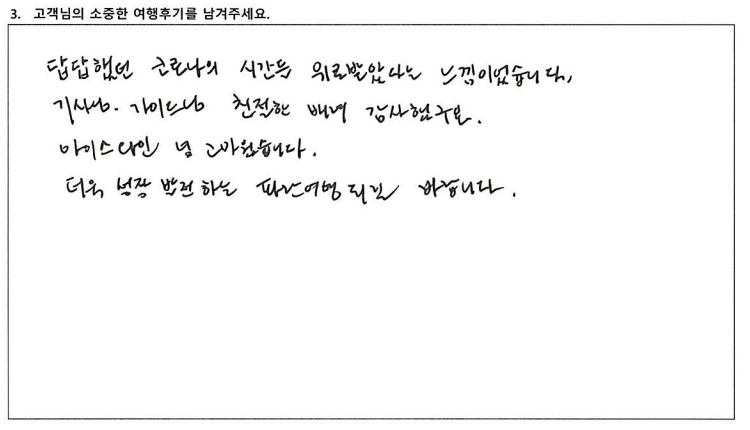 3. 고객님의 소중한 여행후기를 남겨주세요.
답답했던 코로나의 시간들 위로받았다는 느낌이었습니다,
기사님. 가이드님 친절한 배려 감사했구요.
아이스와인 넘 고마웠습니다.
더욱 성장 발전하는 파란여행되길 바랍니다.